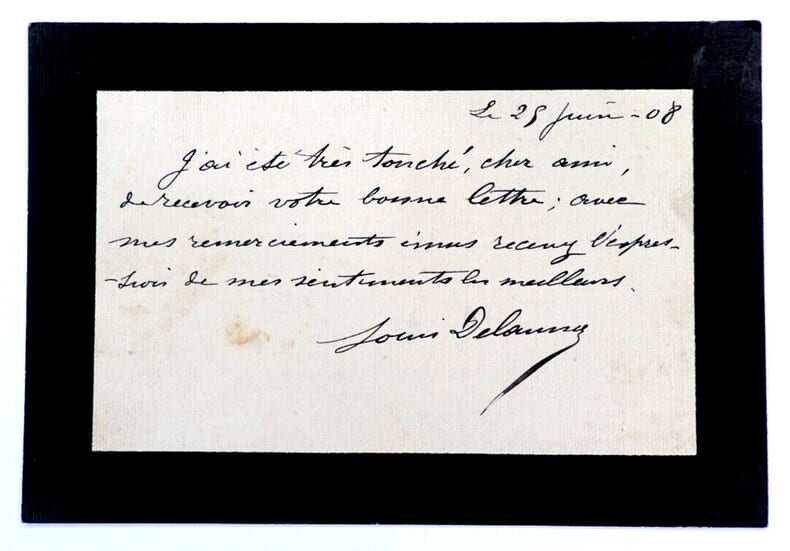 Le 25 juin - 08
J'ai été très touché, cher ami,
de recevoir votre bonne lettre ; avec
mes remerciements émus recevez l'expres-
-sion de mes sentiments les meilleurs.
Louis Delaunay